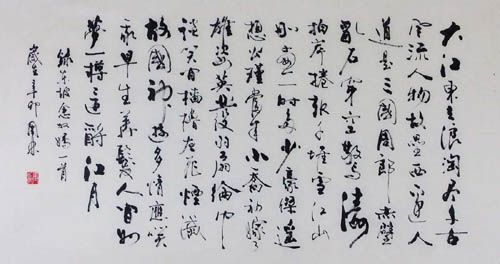 大江東去浪淘尽千古
風流人物故壘西邊人
道是三國周郎赤壁
亂石穿空驚濤
拍岸捲起千堆雪江山
如畫一時多少豪傑遙
想公瑾當年小喬初嫁了
雄姿英發羽扇綸巾
談笑間檣櫓灰飛煙滅
故國神遊多情應笑
我早生華髮人間如
夢一樽還酹江月
錄東坡念奴嬌一首
歲在辛卯